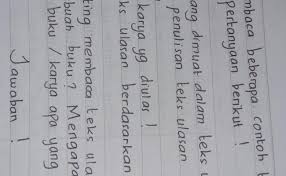 mbaca beberapa contoh t
pertanyaan berikut !
ang dimuat dalam teks u
penulisan teks ulasan
karya yg diulas !
ks ulasan berdasarkan
ting membaca teks ula
buah buku? Mengapa
buku / karya apa yang
Jawaban !